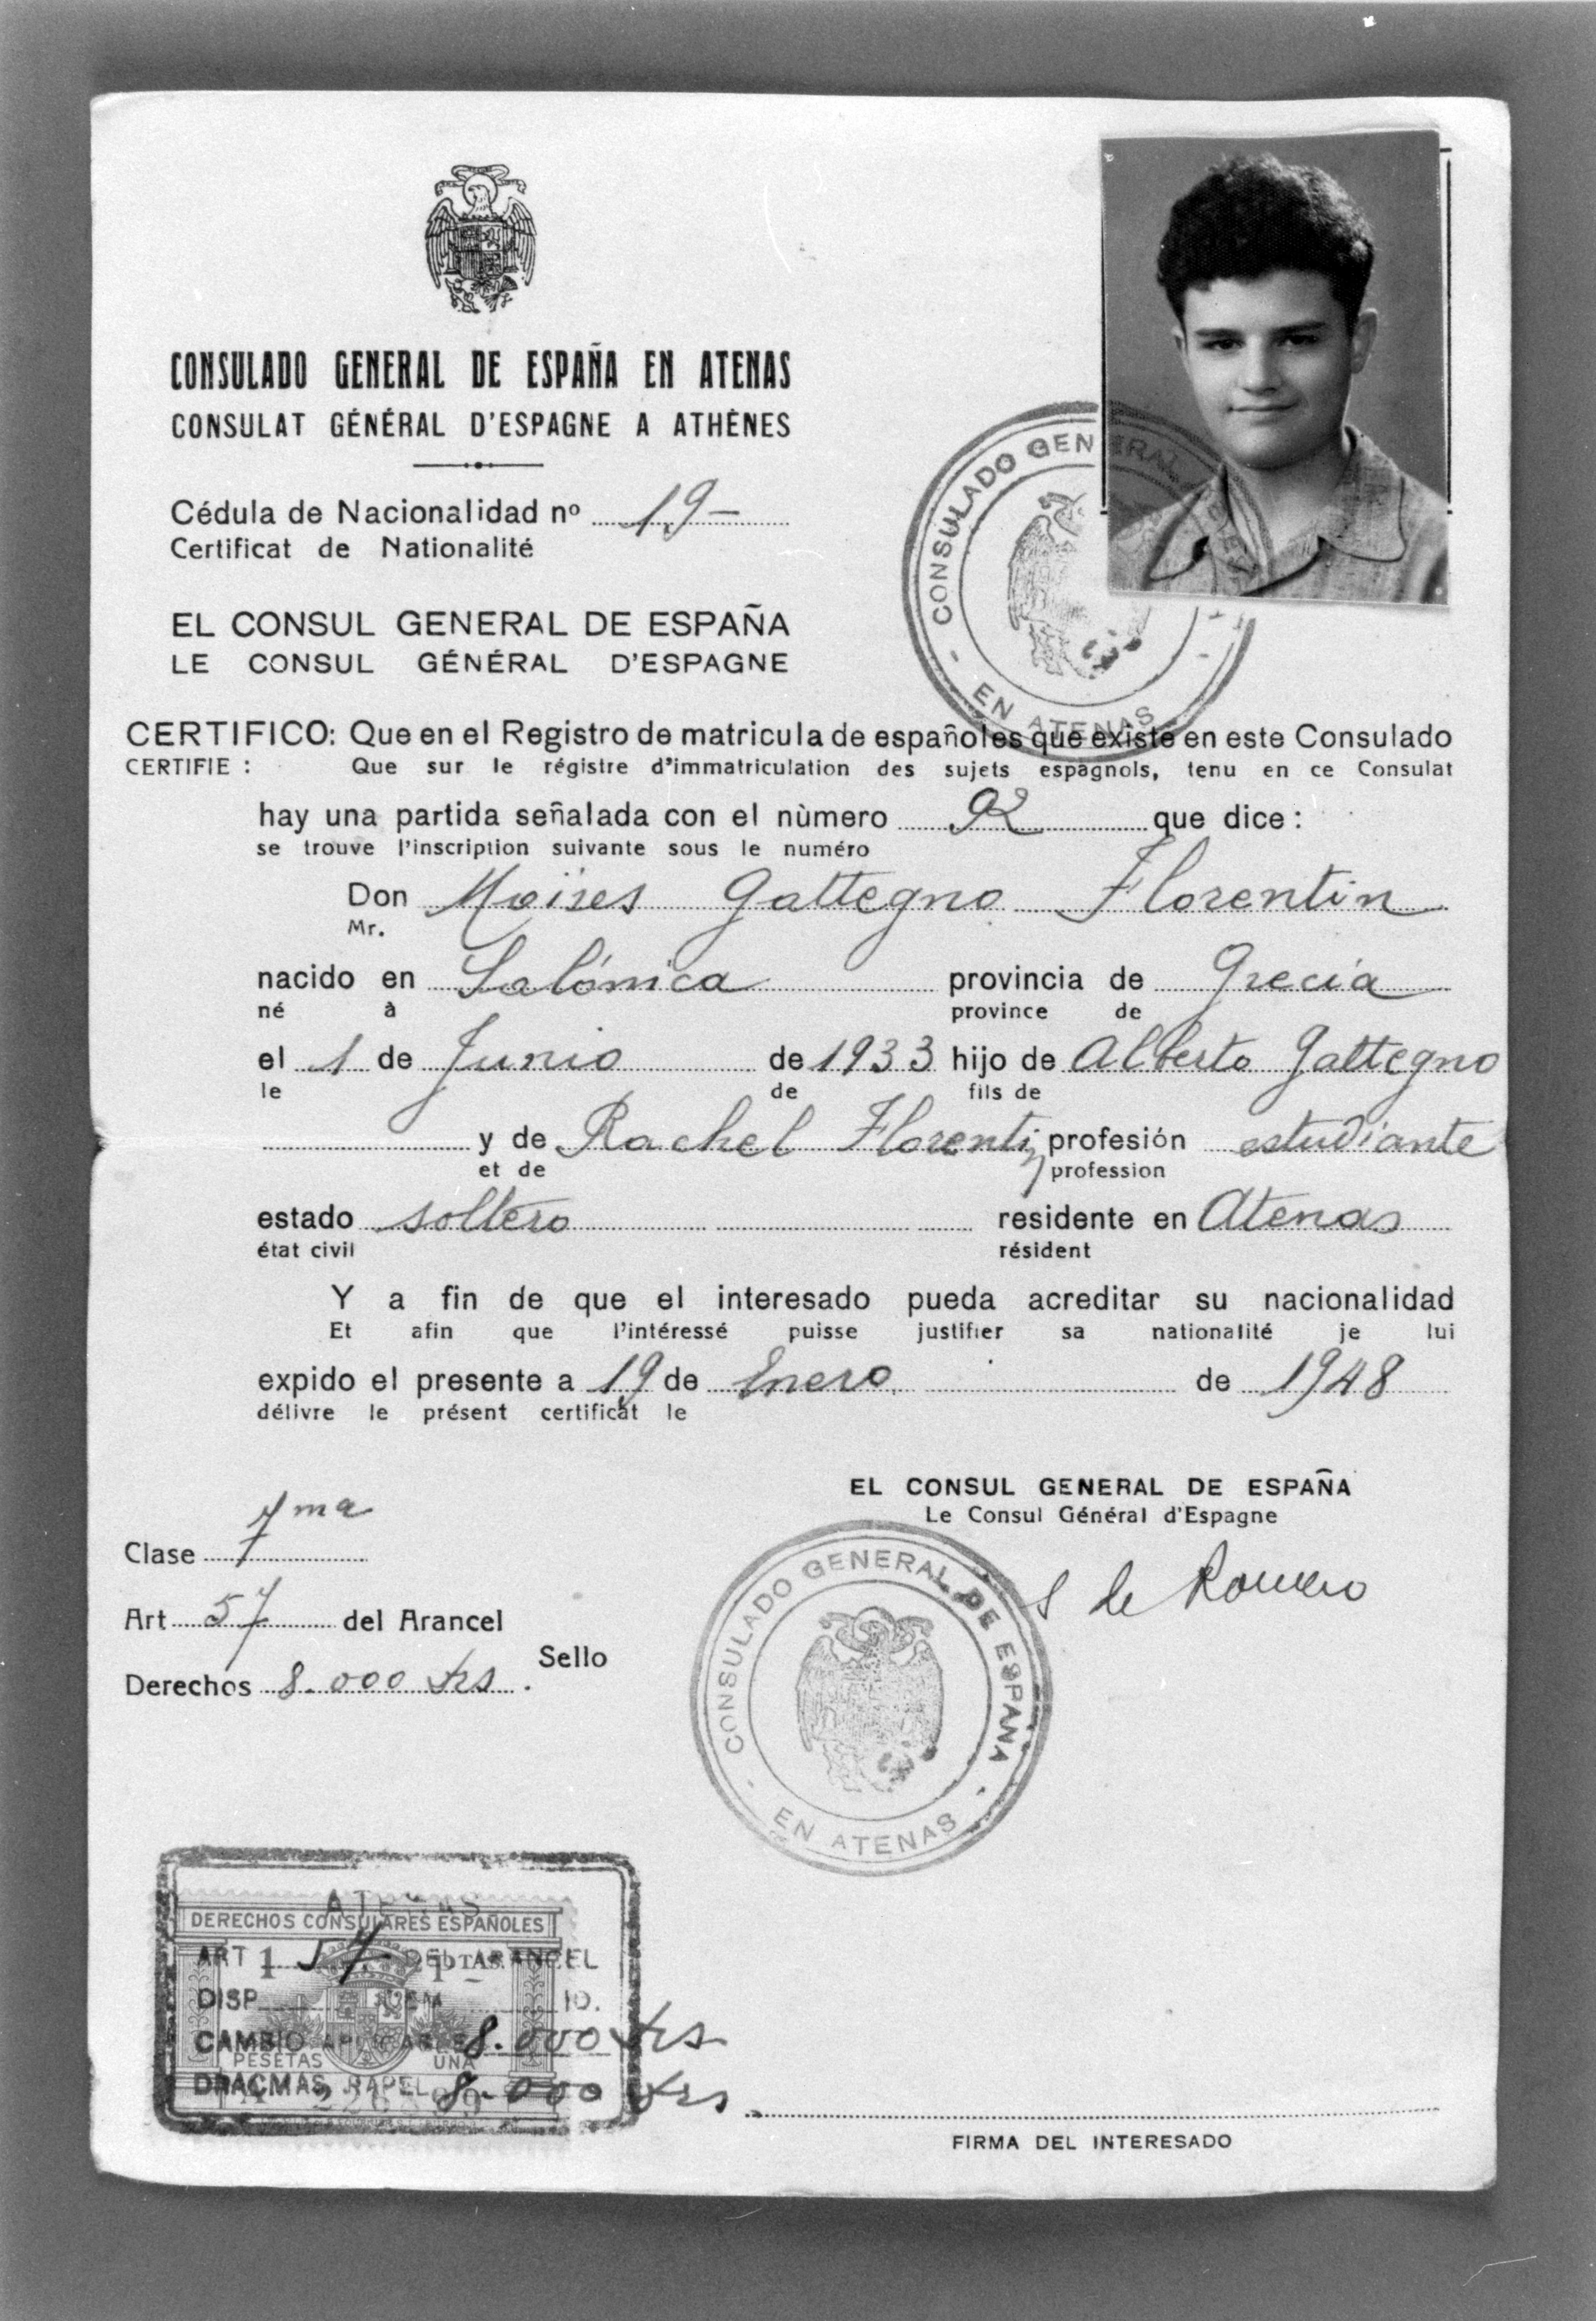 CONSULADO GENERAL DE ESPAÑA EN ATENAS
CONSULAT GÉNÉRAL D'ESPAGNE A ATHÈNES
Cédula de Nacionalidad nº 19-
Certificat de Nationalité
CONSULADO GENERAL
EN ATENAS
EL CONSUL GENERAL DE ESPAÑA
LE CONSUL GÉNÉRAL D'ESPAGNE
CERTIFICO: Que en el Registro de matricula de españoles que existe en este Consulado
CERTIFIE : Que sur le régistre d'immatriculation des sujets espagnols, tenu en ce Consulat
hay una partida señalada con el nùmero 92 que dice :
se trouve l'inscription suivante sous le numéro
Don Moïses Gattegno Florentin
Mr.
nacido en Salónica provincia de Grecia
né à province de
el 1 de Junio de 1933 hijo de Alberto Gattegno
le de fils de
y de Rachel Florentin profesión estudiante
et de profession
estado soltero residente en Atenas
état civil résident
Y a fin de que el interesado pueda acreditar su nacionalidad
Et afin que l'intéressé puisse justifier sa nationalité je lui
expido el presente a 19 de Enero de 1948
délivre le présent certificat le
EL CONSUL GENERAL DE ESPAÑA
Le Consul Général d'Espagne
S de Romero
Clase 7ma
Art 57 del Arancel
Sello
Derechos 8.000 drs.
CONSULADO GENERAL DE ESPAÑA
EN ATENAS
ATENAS
DERECHOS CONSULARES ESPAÑOLES
ART 57 DEL ARANCEL
1 PTAS.
DISP. NUM. 10.
CAMBIO APLICABLE 8.000 drs
PESETAS UNA
DRACMAS PAPEL 8.000 drs
FIRMA DEL INTERESADO